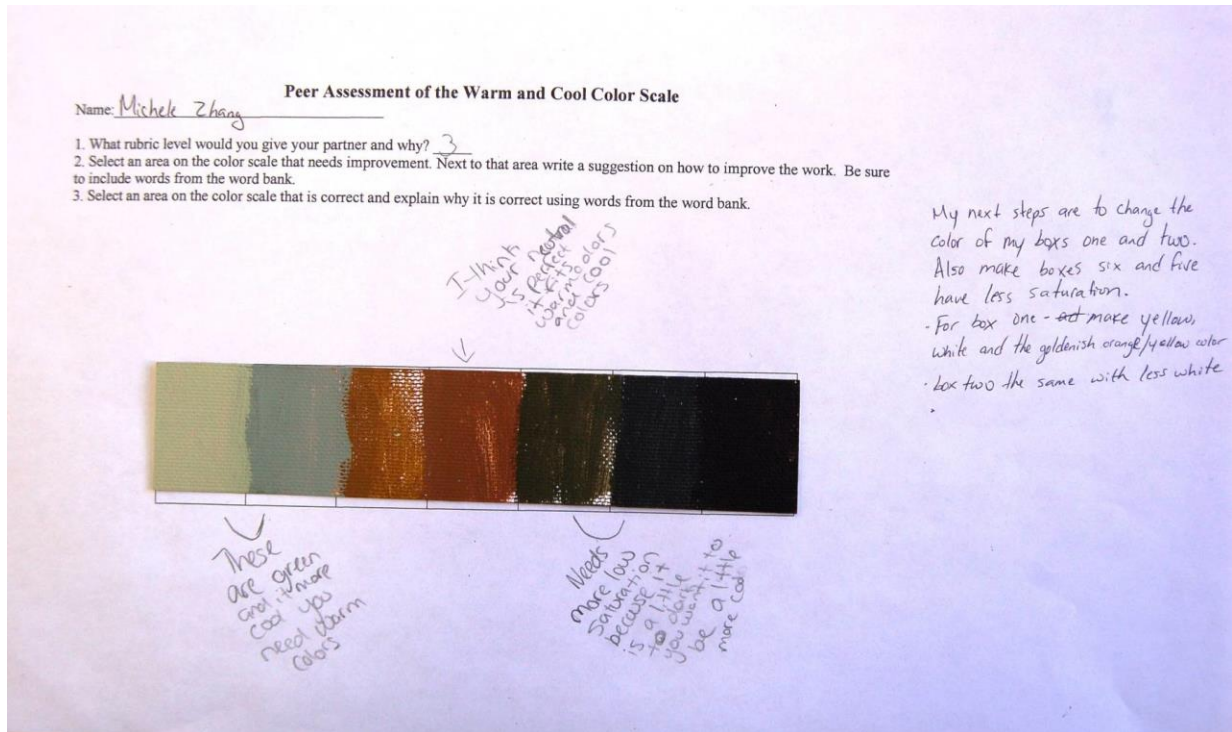 Peer Assessment of the Warm and Cool Color Scale
Name: Michele Zhang
1. What rubric level would you give your partner and why? 3
2. Select an area on the color scale that needs improvement. Next to that area write a suggestion on how to improve the work. Be sure
to include words from the word bank.
3. Select an area on the color scale that is correct and explain why it is correct using words from the word bank.
I think
your neutral
is perfect
it fits
warm colors
and cool
colors
My next steps are to change the
color of my boxs one and two.
Also make boxes six and five
have less saturation.
· For box one - make yellow,
white and the goldenish orange/yellow color
· box two the same with less white
.
These
are green
and it more
cool you
need warm
colors
Needs
more low
saturation
because it
is a little
to dark
you want it to
be a little
more cool